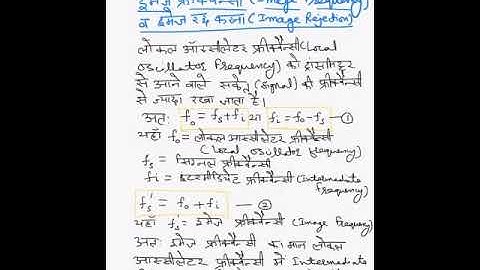 इमेज फ्रीक्वैन्सी (Image Frequency)
व इमेज रद्द करना (Image Rejection)
लोकल ऑस्सीलेटर फ्रीक्वैन्सी (Local
oscillator frequency) को ट्रांसमीटर
से आने वाले संकेत (signal) की फ्रीक्वैन्सी
से ज्यादा रखा जाता है।
अतः fo = fs + fi या fi = fo - fs — ①
यहाँ fo = लोकल आस्सीलेटर फ्रीक्वैन्सी
(Local oscillator frequency)
fs = सिगनल फ्रीक्वैन्सी
fi = इन्टरमीडिएट फ्रीक्वैन्सी (Intermediate
frequency)
fs' = fo + fi — ②
यहाँ fs' = इमेज फ्रीक्वैन्सी (Image frequency)
अतः इमेज फ्रीक्वैन्सी का मान लोकल
आस्सीलेटर फ्रीक्वैन्सी में Intermediate